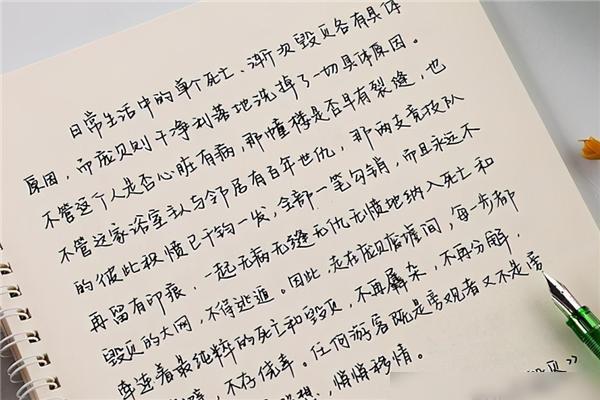 日常生活中的单个死亡、渐次毁灭各有其具体
原因，而庞贝则干净利落地洗掉了一切具体原因。
不管这个人是否心脏有病，那幢楼是否早有裂缝，也
不管这家浴室主人与邻居有百年世仇，那两支竞技队
的彼此积愤已千钧一发，全部一笔勾销，而且永远不
再留有印痕，一起无病无缝无仇无愤地纳入死亡和
毁灭的大网，不得逃遁。因此，走在庞贝废墟间，每一步都
牵连着最纯粹的死亡和毁灭，不再羼杂，不再分解，
不存侥幸。任何游客既是旁观者又不是旁
，悄悄移情。